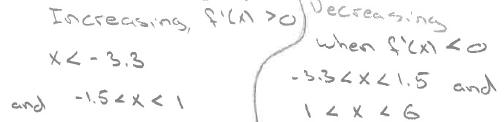 Increasing, f'(x) > 0
x < -3.3
and -1.5 < x < 1
Decreasing
when f'(x) < 0
-3.3 < x < 1.5 and
1 < x < 6